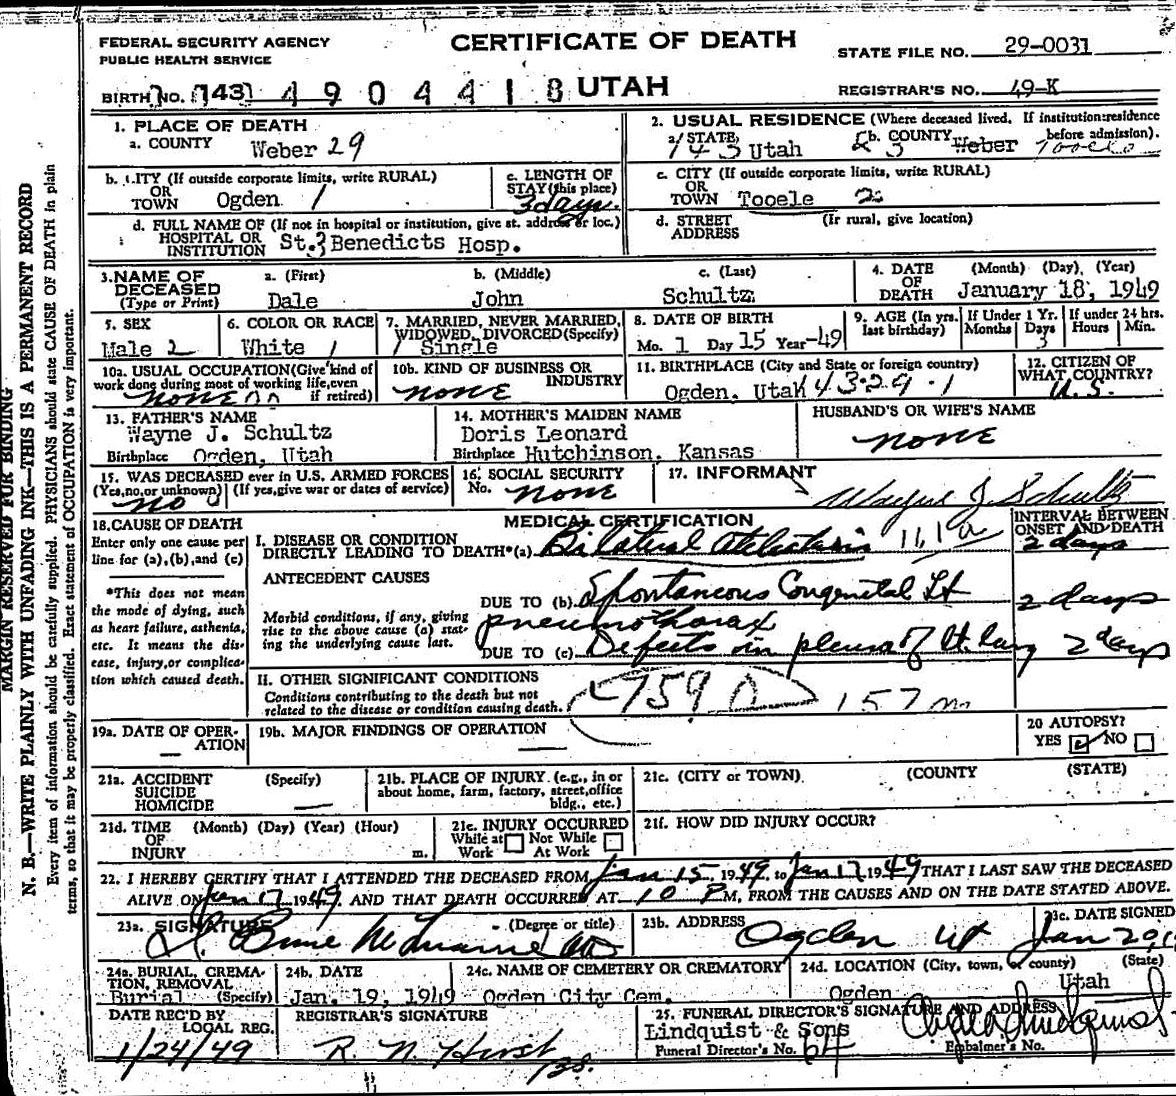 FEDERAL SECURITY AGENCY
PUBLIC HEALTH SERVICE
CERTIFICATE OF DEATH
STATE FILE NO. 29-0031
BIRTH NO. 143 4 9 0 4 4 1 8 UTAH
REGISTRAR'S NO. 49-K
1. PLACE OF DEATH
a. COUNTY Weber 29
2. USUAL RESIDENCE (Where deceased lived. If institution:residence before admission).
a. STATE 143 Utah b. COUNTY Weber Tooele
b. CITY (If outside corporate limits, write RURAL)
OR TOWN Ogden 1
c. LENGTH OF STAY (this place) 3 days.
c. CITY (If outside corporate limits, write RURAL)
OR TOWN Tooele 2
d. FULL NAME OF (If not in hospital or institution, give st. address or loc.)
HOSPITAL OR INSTITUTION St. Benedicts Hosp.
d. STREET ADDRESS (If rural, give location)
3. NAME OF DECEASED (Type or Print)
a. (First) Dale
b. (Middle) John
c. (Last) Schultz
4. DATE OF DEATH (Month) (Day), (Year)
January 18, 1949
5. SEX
Male 2
6. COLOR OR RACE
White 1
7. MARRIED, NEVER MARRIED, WIDOWED, DIVORCED(Specify)
1 Single
8. DATE OF BIRTH
Mo. 1 Day 15 Year -49
9. AGE (In yrs. last birthday)
If Under 1 Yr. Months Days 3
If under 24 hrs. Hours Min.
10a. USUAL OCCUPATION(Give kind of work done during most of working life,even if retired)
none
10b. KIND OF BUSINESS OR INDUSTRY
none
11. BIRTHPLACE (City and State or foreign country)
Ogden, Utah 43-29-1
12. CITIZEN OF WHAT COUNTRY?
U.S.
13. FATHER'S NAME
Wayne J. Schultz
Birthplace Ogden, Utah
14. MOTHER'S MAIDEN NAME
Doris Leonard
Birthplace Hutchinson, Kansas
HUSBAND'S OR WIFE'S NAME
none
15. WAS DECEASED ever in U.S. ARMED FORCES
(Yes,no,or unknown) (If yes,give war or dates of service)
No
16. SOCIAL SECURITY
No. none
17. INFORMANT
Wayne J. Schultz
18.CAUSE OF DEATH
Enter only one cause per line for (a),(b),and (c)
*This does not mean the mode of dying, such as heart failure, asthenia, etc. It means the disease, injury,or complication which caused death.
MEDICAL CERTIFICATION
INTERVAL BETWEEN ONSET AND DEATH
I. DISEASE OR CONDITION
DIRECTLY LEADING TO DEATH*(a) Bilateral Atelectasis 161a 2 days
ANTECEDENT CAUSES
Morbid conditions, if any, giving rise to the above cause (a) stating the underlying cause last.
DUE TO (b) Spontaneous Congenital Lt pneumothorax 2 days
DUE TO (c) Defects in pleura of Lt. lung 2 days
II. OTHER SIGNIFICANT CONDITIONS
Conditions contributing to the death but not related to the disease or condition causing death.
759 157 m
19a. DATE OF OPERATION
19b. MAJOR FINDINGS OF OPERATION
20 AUTOPSY?
YES NO
21a. ACCIDENT SUICIDE HOMICIDE (Specify)
21b. PLACE OF INJURY (e.g., in or about home, farm, factory, street,office bldg., etc.)
21c. (CITY or TOWN) (COUNTY) (STATE)
21d. TIME OF INJURY (Month) (Day) (Year) (Hour) m.
21e. INJURY OCCURRED
While at Work Not While At Work
21f. HOW DID INJURY OCCUR?
22. I HEREBY CERTIFY THAT I ATTENDED THE DECEASED FROM Jan 15, 1949, to Jan 17 1949 THAT I LAST SAW THE DECEASED
ALIVE ON Jan 17 1949. AND THAT DEATH OCCURRED AT 10 P M, FROM THE CAUSES AND ON THE DATE STATED ABOVE.
23a. SIGNATURE (Degree or title)
23b. ADDRESS Ogden Ut
23c. DATE SIGNED
Jan 20,
24a. BURIAL, CREMATION, REMOVAL (Specify)
Burial
24b. DATE
Jan. 19, 1949
24c. NAME OF CEMETERY OR CREMATORY
Ogden City Cem.
24d. LOCATION (City, town, or county) (State)
Ogden Utah
DATE REC'D BY LOCAL REG.
1/24/49
REGISTRAR'S SIGNATURE
R. N. Hirst
25. FUNERAL DIRECTOR'S SIGNATURE AND ADDRESS
Lindquist & Sons
Funeral Director's No. 64
Embalmer's No.
MARGIN RESERVED FOR BINDING
N. B.—WRITE PLAINLY WITH UNFADING INK—THIS IS A PERMANENT RECORD
Every item of information should be carefully supplied. PHYSICIANS should state CAUSE OF DEATH in plain
terms, so that it may be properly classified. Exact statement of OCCUPATION is very important.